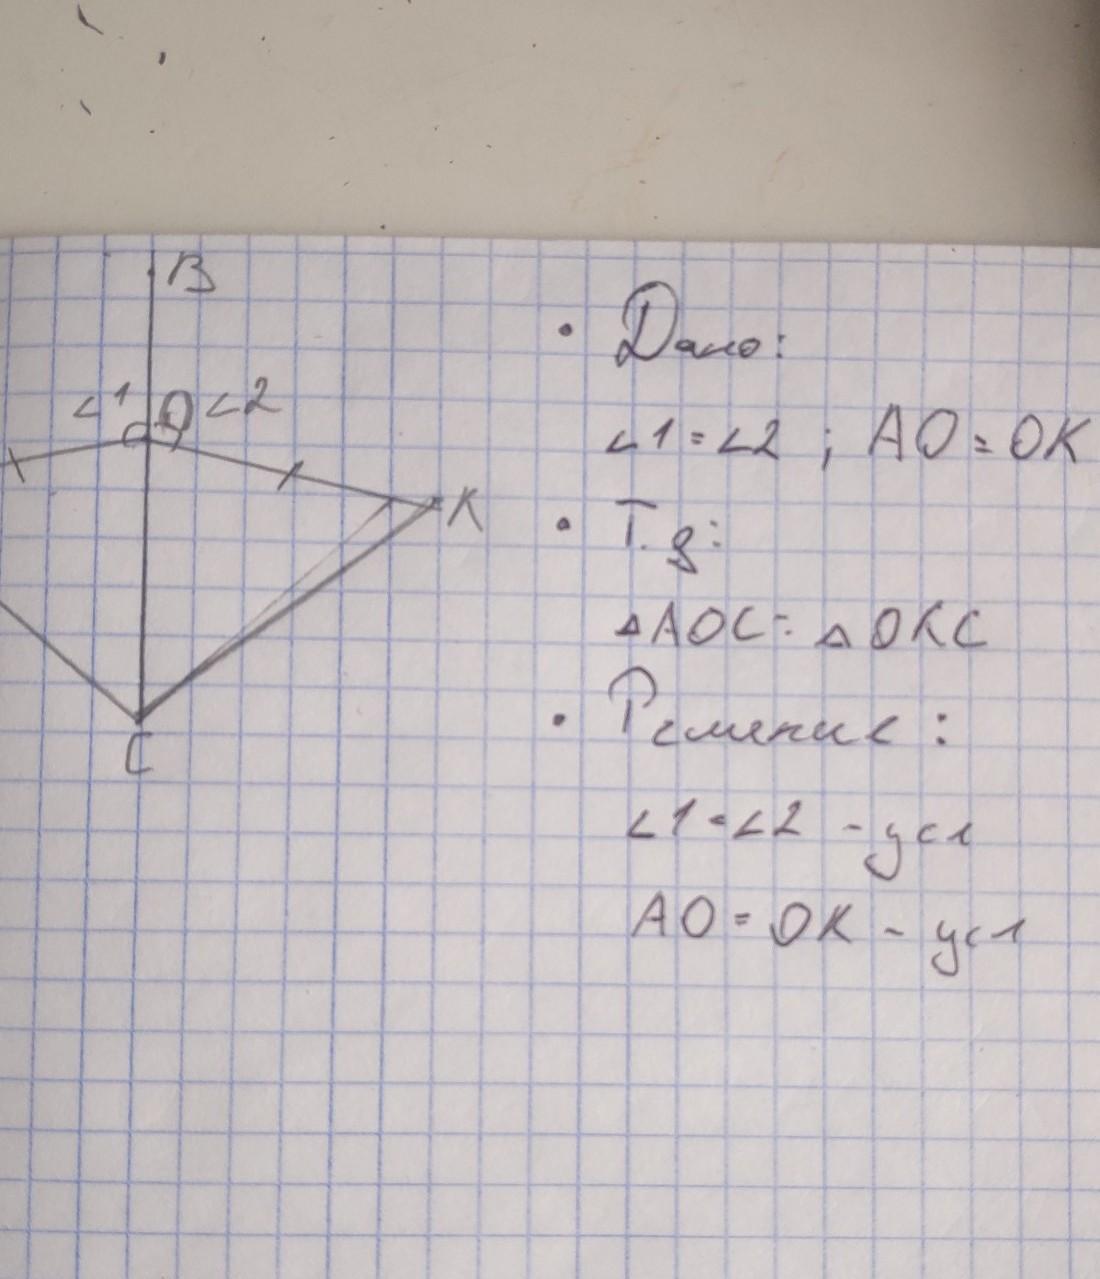 B
∠1 O ∠2
K
C
• Дано:
∠1 = ∠2 ; AO = OK
• Т. д:
△AOC = △OKC
• Решение :
∠1 = ∠2 - усл
AO = OK - усл